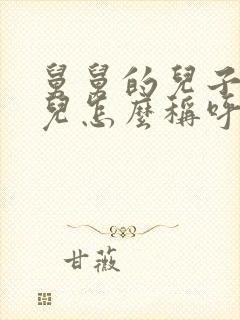 舅舅的兒子
兒怎麼稱呼
甘薇